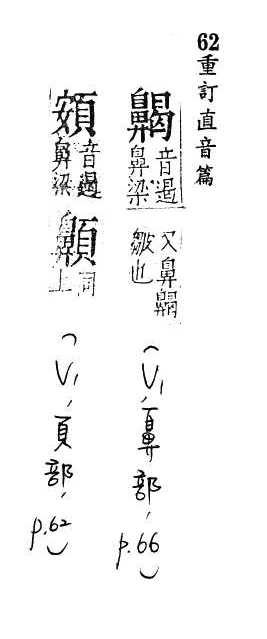 62重訂直音篇
齃 音遏鼻梁 又鼻齃皺也 (V1, 鼻部, p.66)
頞 音遏鼻梁 同上 (V1, 頁部, p.62)